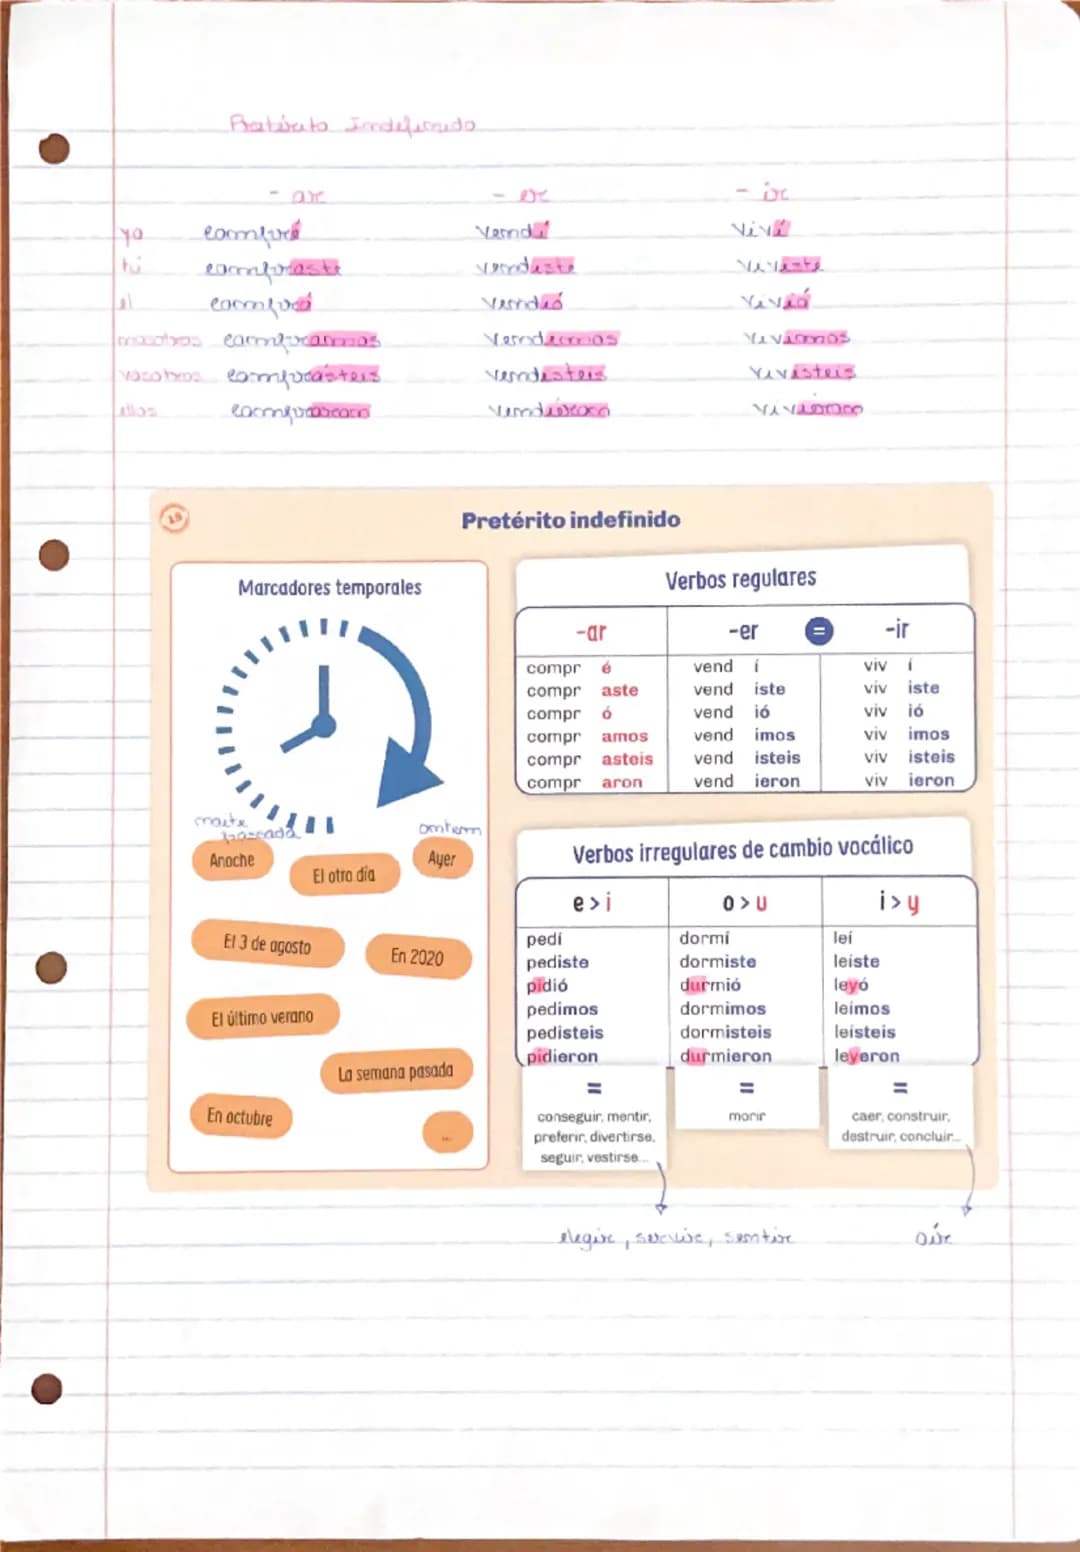 Pretérito Indefinido
- ar - er - ir
yo compré vendí viví
tú compraste vendiste viviste
el compró vendió vivió
nosotros compramos vendimos vivimos
vosotros comprasteis vendisteis vivisteis
ellos compraron vendieron vivieron
19
Pretérito indefinido
Marcadores temporales
noite passada
ontem
Anoche
El otro día
Ayer
El 3 de agosto
En 2020
El último verano
La semana pasada
En octubre
...
Verbos regulares
-ar -er = -ir
compr é vend í viv í
compr aste vend iste viv iste
compr ó vend ió viv ió
compr amos vend imos viv imos
compr asteis vend isteis viv isteis
compr aron vend ieron viv ieron
Verbos irregulares de cambio vocálico
e > i o > u i > y
pedí dormí leí
pediste dormiste leíste
pidió durmió leyó
pedimos dormimos leímos
pedisteis dormisteis leísteis
pidieron durmieron leyeron
= = =
conseguir, mentir,
preferir, divertirse,
seguir, vestirse...
morir
caer, construir,
destruir, concluir...
elegir, servir, sentir
oír